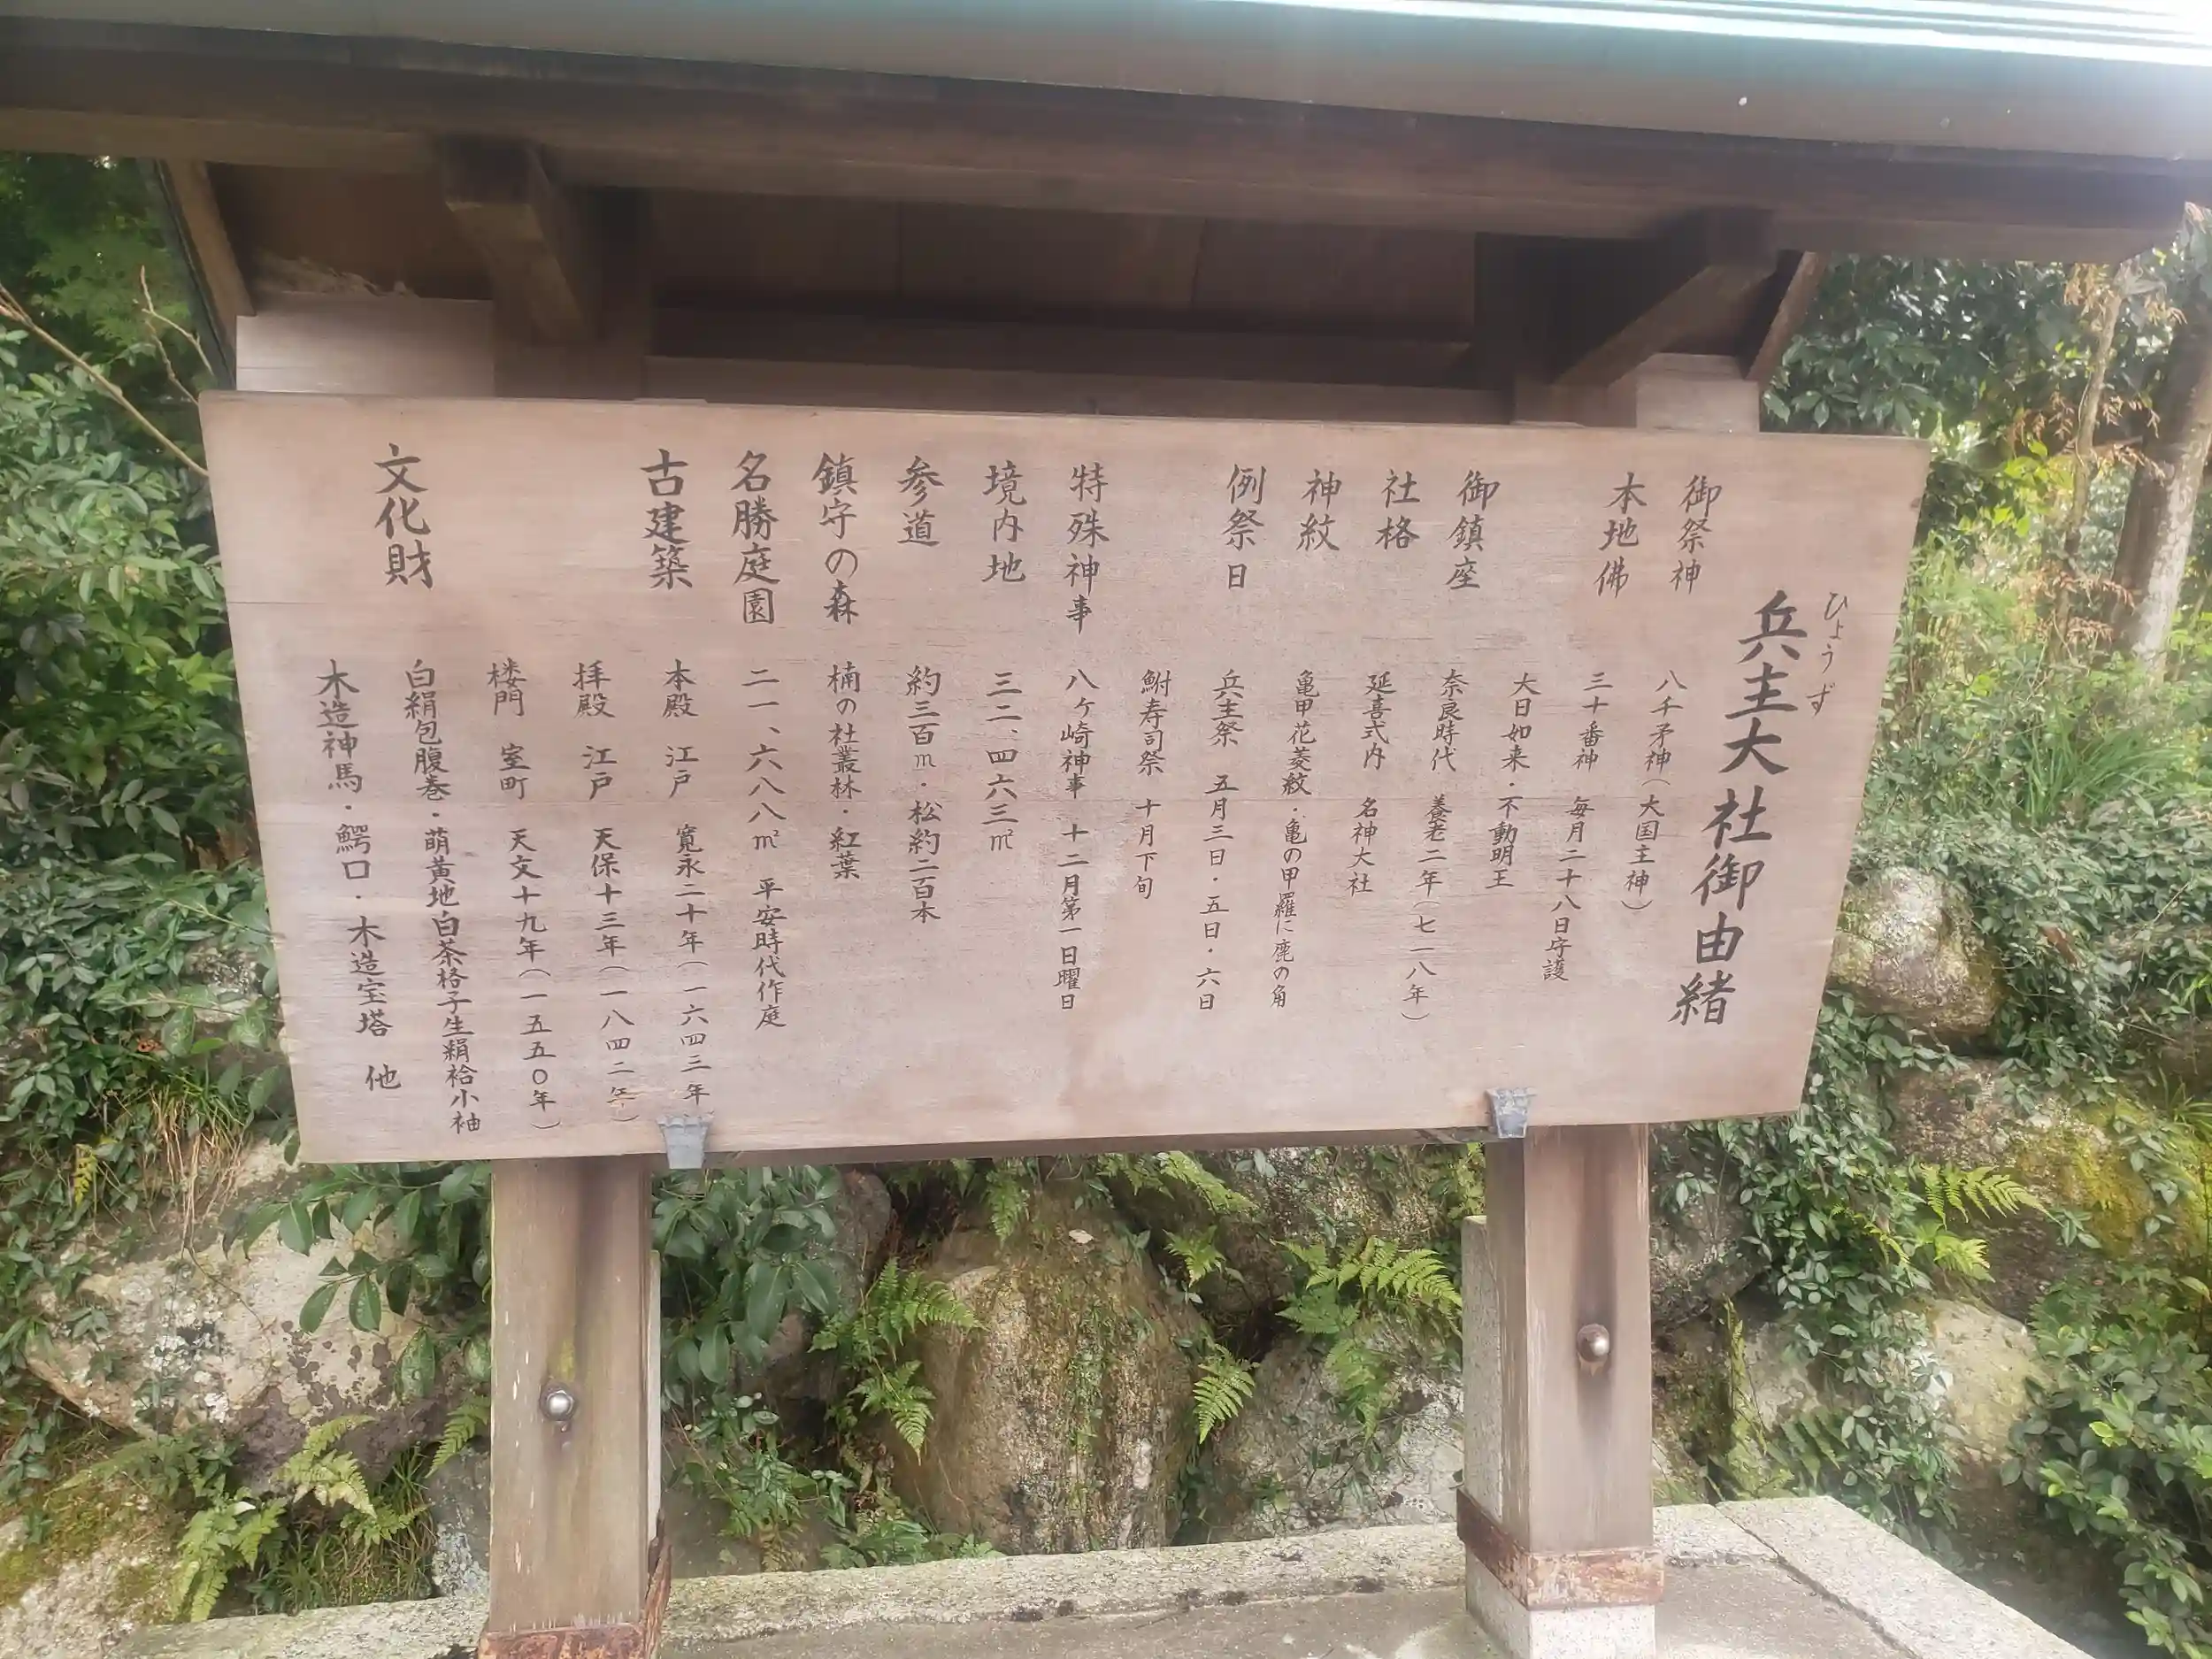 兵主大社御由緒
ひょうず
御祭神 八千矛神(大国主神)
本地佛 三十番神 毎月二十八日守護
大日如来・不動明王
御鎮座 奈良時代 養老二年(七一八年)
社格 延喜式内 名神大社
神紋 亀甲花菱紋・亀の甲羅に鹿の角
例祭日 兵主祭 五月三日・五日・六日
鮒寿司祭 十月下旬
特殊神事 八ヶ崎神事 十二月第一日曜日
境内地 三二、四六三㎡
参道 約三百m・松約二百本
鎮守の森 楠の社叢林・紅葉
名勝庭園 二一、六八八㎡ 平安時代作庭
古建築 本殿 江戸 寛永二十年(一六四三年
拝殿 江戸 天保十三年(一八四二年)
楼門 室町 天文十九年(一五五〇年)
文化財 白絹包腹巻・萌黄地白茶格子生絹袷小袖
木造神馬・鰐口・木造宝塔 他